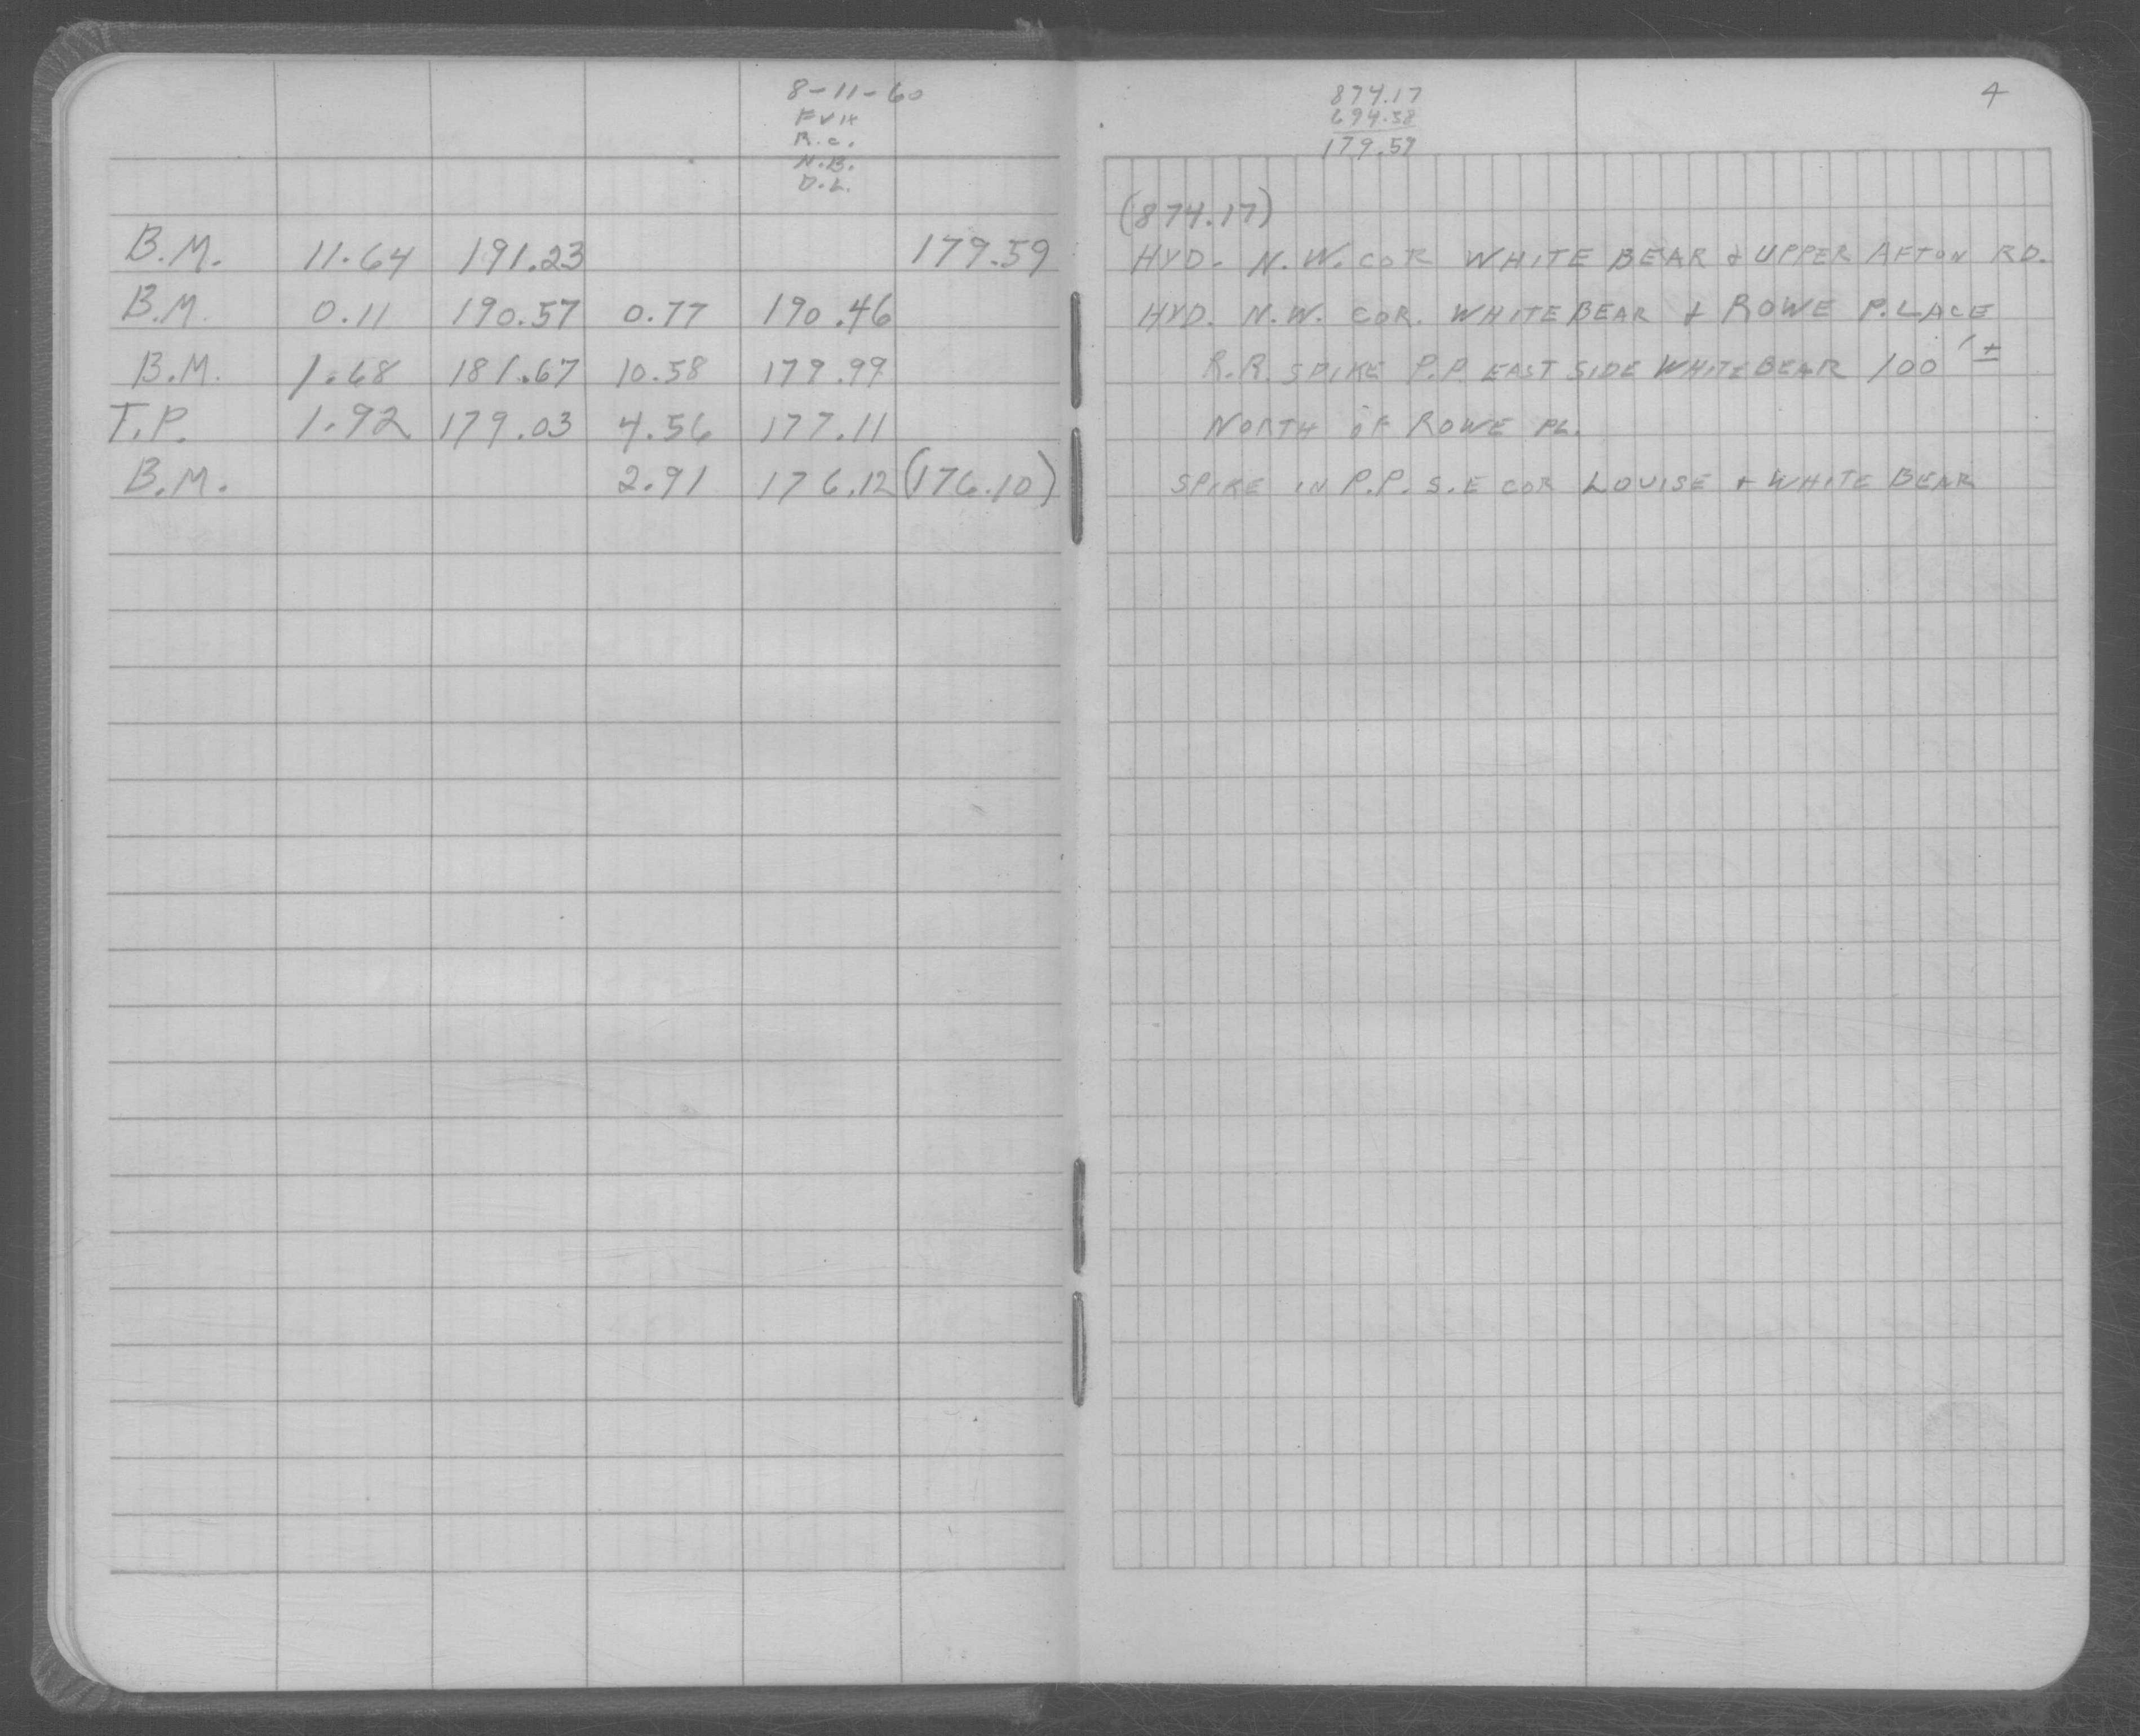 8-11-60
FVH
R.C.
N.B.
D.L.
B.M. 11.64 191.23 179.59
B.M. 0.11 190.57 0.77 190.46
B.M. 1.68 181.67 10.58 179.99
T.P. 1.92 179.03 4.56 177.11
B.M. 2.91 176.12 (176.10)
4
874.17
694.58
179.59
(874.17)
HYD. N.W. COR WHITE BEAR & UPPER AFTON RD.
HYD. N.W. COR. WHITE BEAR & ROWE PLACE
R.R. SPIKE P.P. EAST SIDE WHITE BEAR 100'±
NORTH OF ROWE PL.
SPIKE IN P.P. S.E COR LOUISE & WHITE BEAR